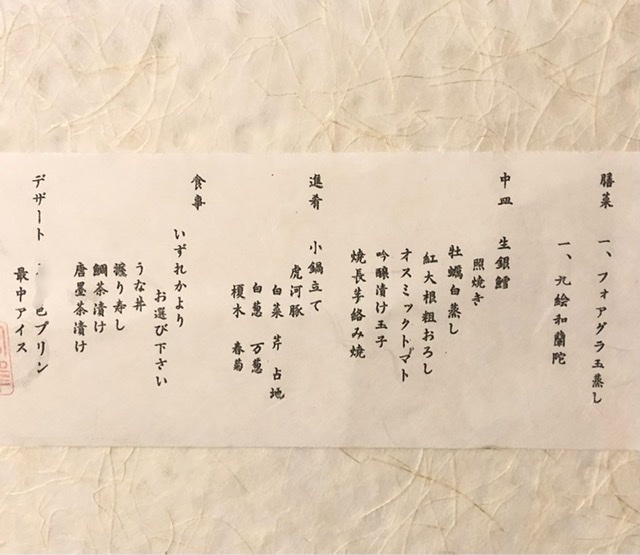 膳菜 一、フォアグラ玉蒸し
一、九絵和蘭陀
中皿 生銀鱈
照焼き
牡蠣白蒸し
紅大根粗おろし
オスミックトマト
吟醸漬け玉子
焼長芋絡み焼
進肴 小鍋立て
虎河豚
白菜 芹 占地
白葱 万葱
榎木 春菊
食事 いずれかより
お選び下さい
うな丼
渡り寿し
鯛茶漬け
唐墨茶漬け
デザート 巴プリン
最中アイス